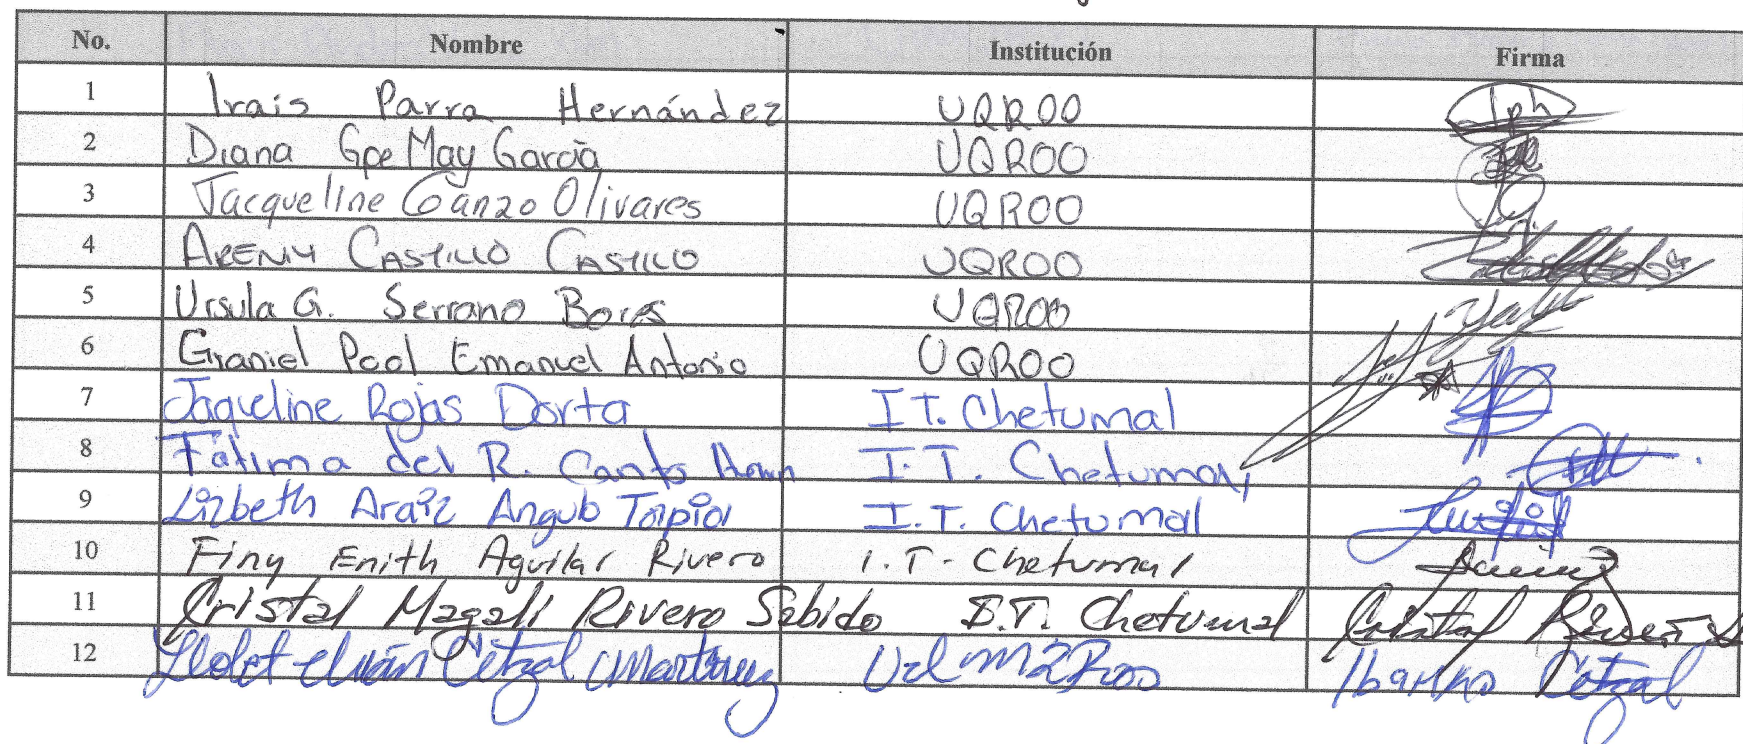 No. Nombre Institución Firma
1 Irais Parra Hernández UQROO Iph
2 Diana Gpe May García UQROO
3 Jacqueline Ganzo Olivares UQROO
4 ARENY CASTILLO CASTILLO UQROO
5 Ursula G. Serrano UQROO
6 Graniel Pool Emanuel Antonio UQROO
7 Jaqueline Rojas Dorta I T. Chetumal
8 Fátima del R. Canto I. T. Chetumal
9 Lizbeth Araiz Angulo Tapia I.T. Chetumal
10 Finy Enith Aguilar Rivero I.T. Chetumal
11 Cristal Magali Rivero Sabido I.T. Chetumal Cristal Rivero S
12 Cetzal Martínez Cetzal